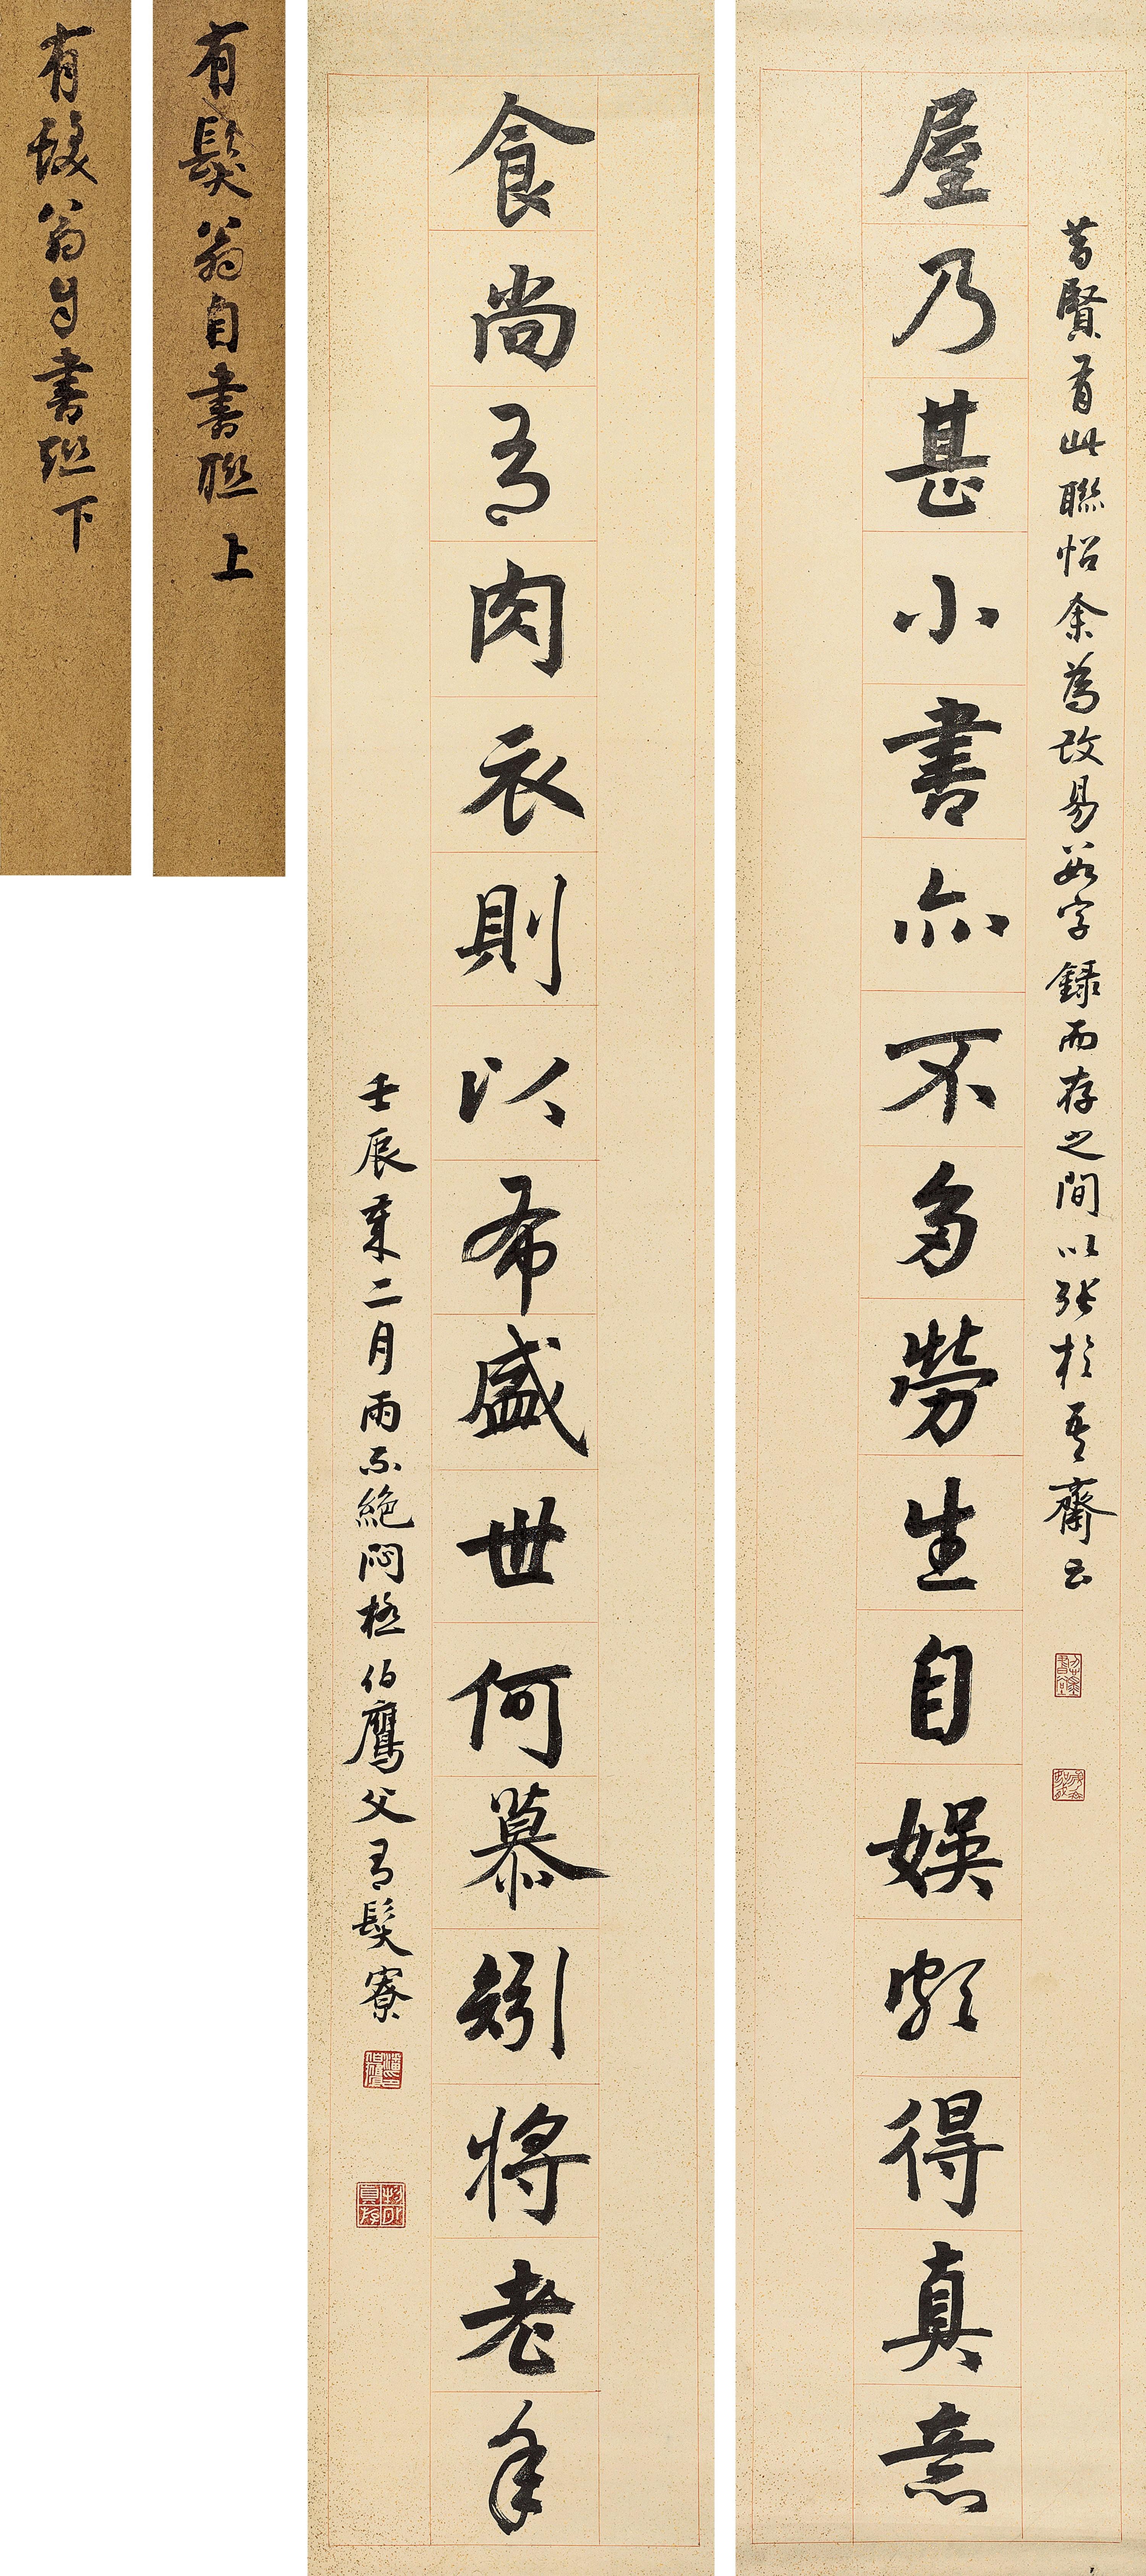 昔賢有此聯怡余為改易數字錄而存之間以張於吾齋云
屋乃甚小書亦不多勞生自娛頗得真意
食尚有肉衣則以布盛世何慕矧將老年
壬辰二月雨不絕悶極伯鷹父有髮寮
潘印伯鷹
有髮翁自書聯上
有髮翁自書聯下